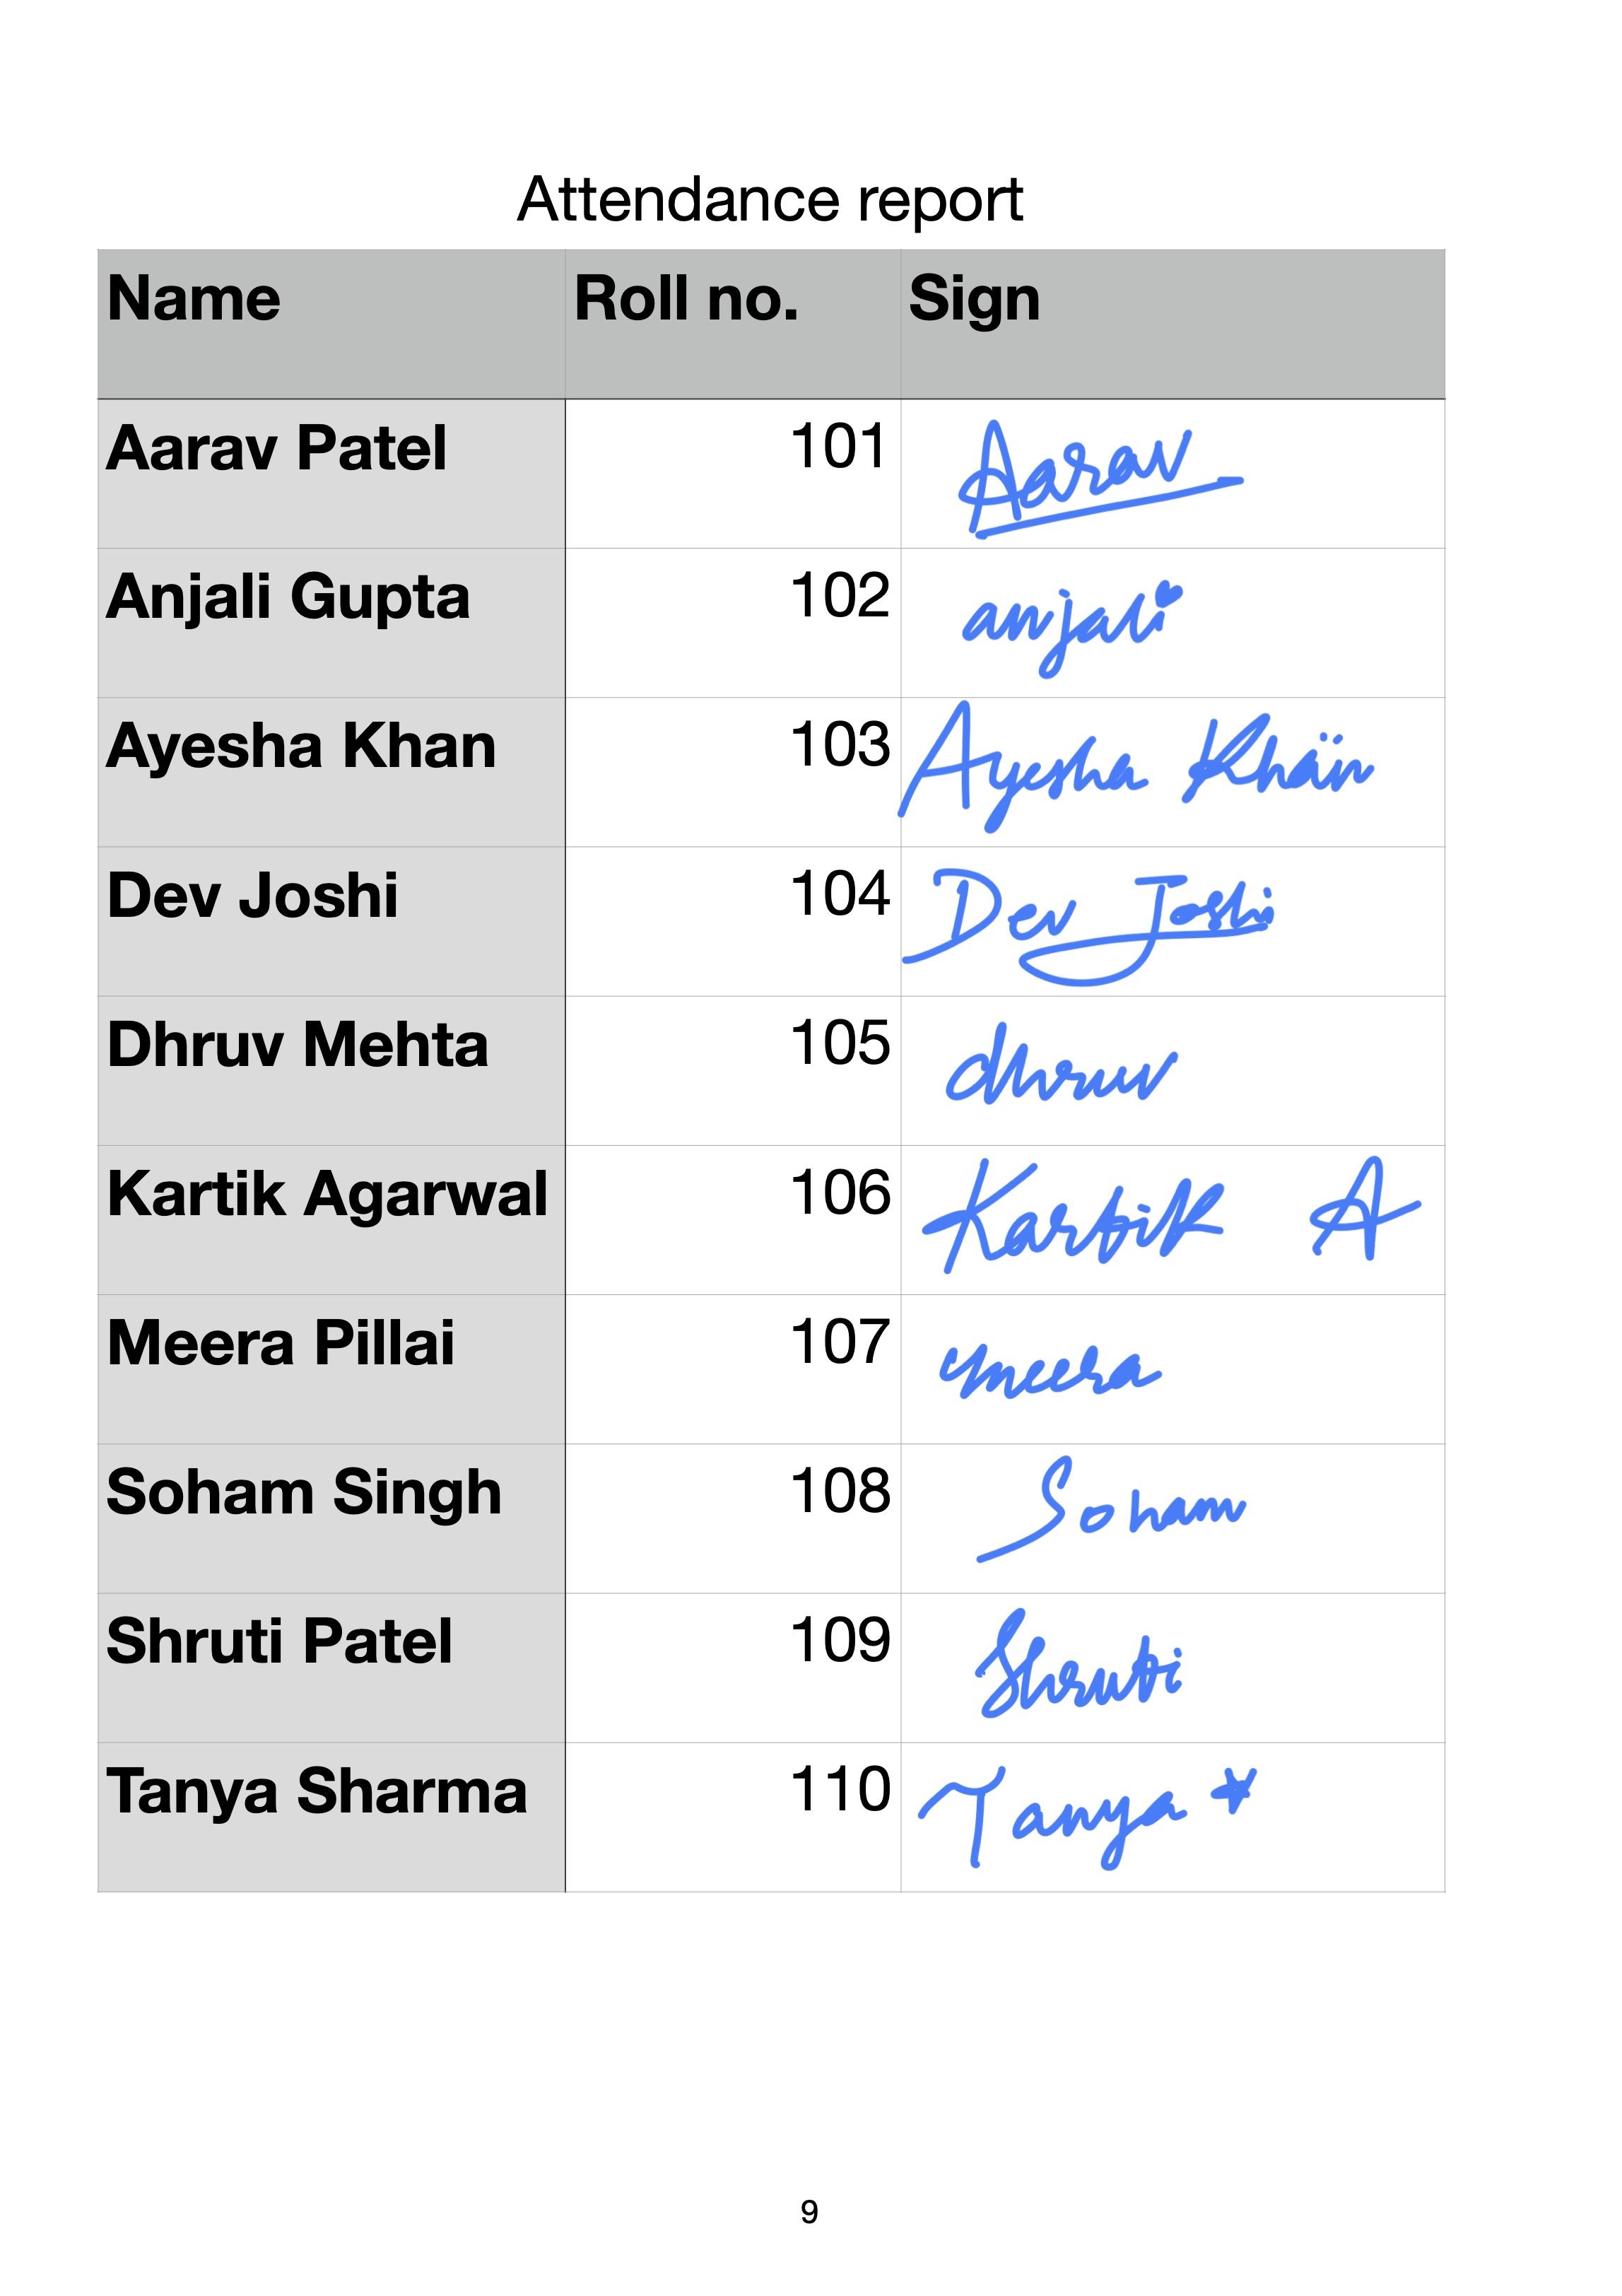 Attendance report
Name Roll no. Sign
Aarav Patel 101 Aarav
Anjali Gupta 102 anjali
Ayesha Khan 103 Ayesha Khan
Dev Joshi 104 Dev Joshi
Dhruv Mehta 105 dhruv
Kartik Agarwal 106 Kartik A
Meera Pillai 107 meera
Soham Singh 108 Soham
Shruti Patel 109 Shruti
Tanya Sharma 110 Tanya
9